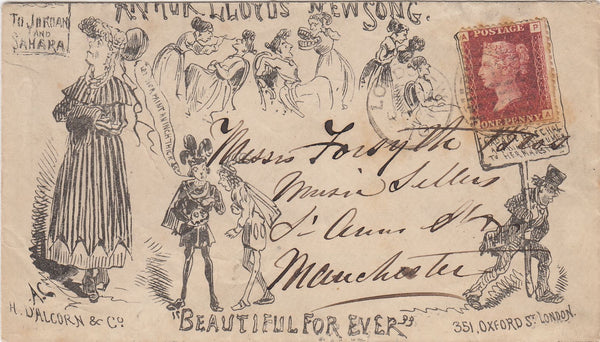 ARTHUR LLOYDS NEW SONG.
TO JORDAN
AND
SAHARA
POSTAGE
A P
P A
ONE PENNY
LO
TO HER MA
Messrs Forsythe Bros
Music Sellers
St Anns St
Manchester
AC
H. D'ALCORN & Co.
"BEAUTIFUL FOR EVER"
351, OXFORD St LONDON.